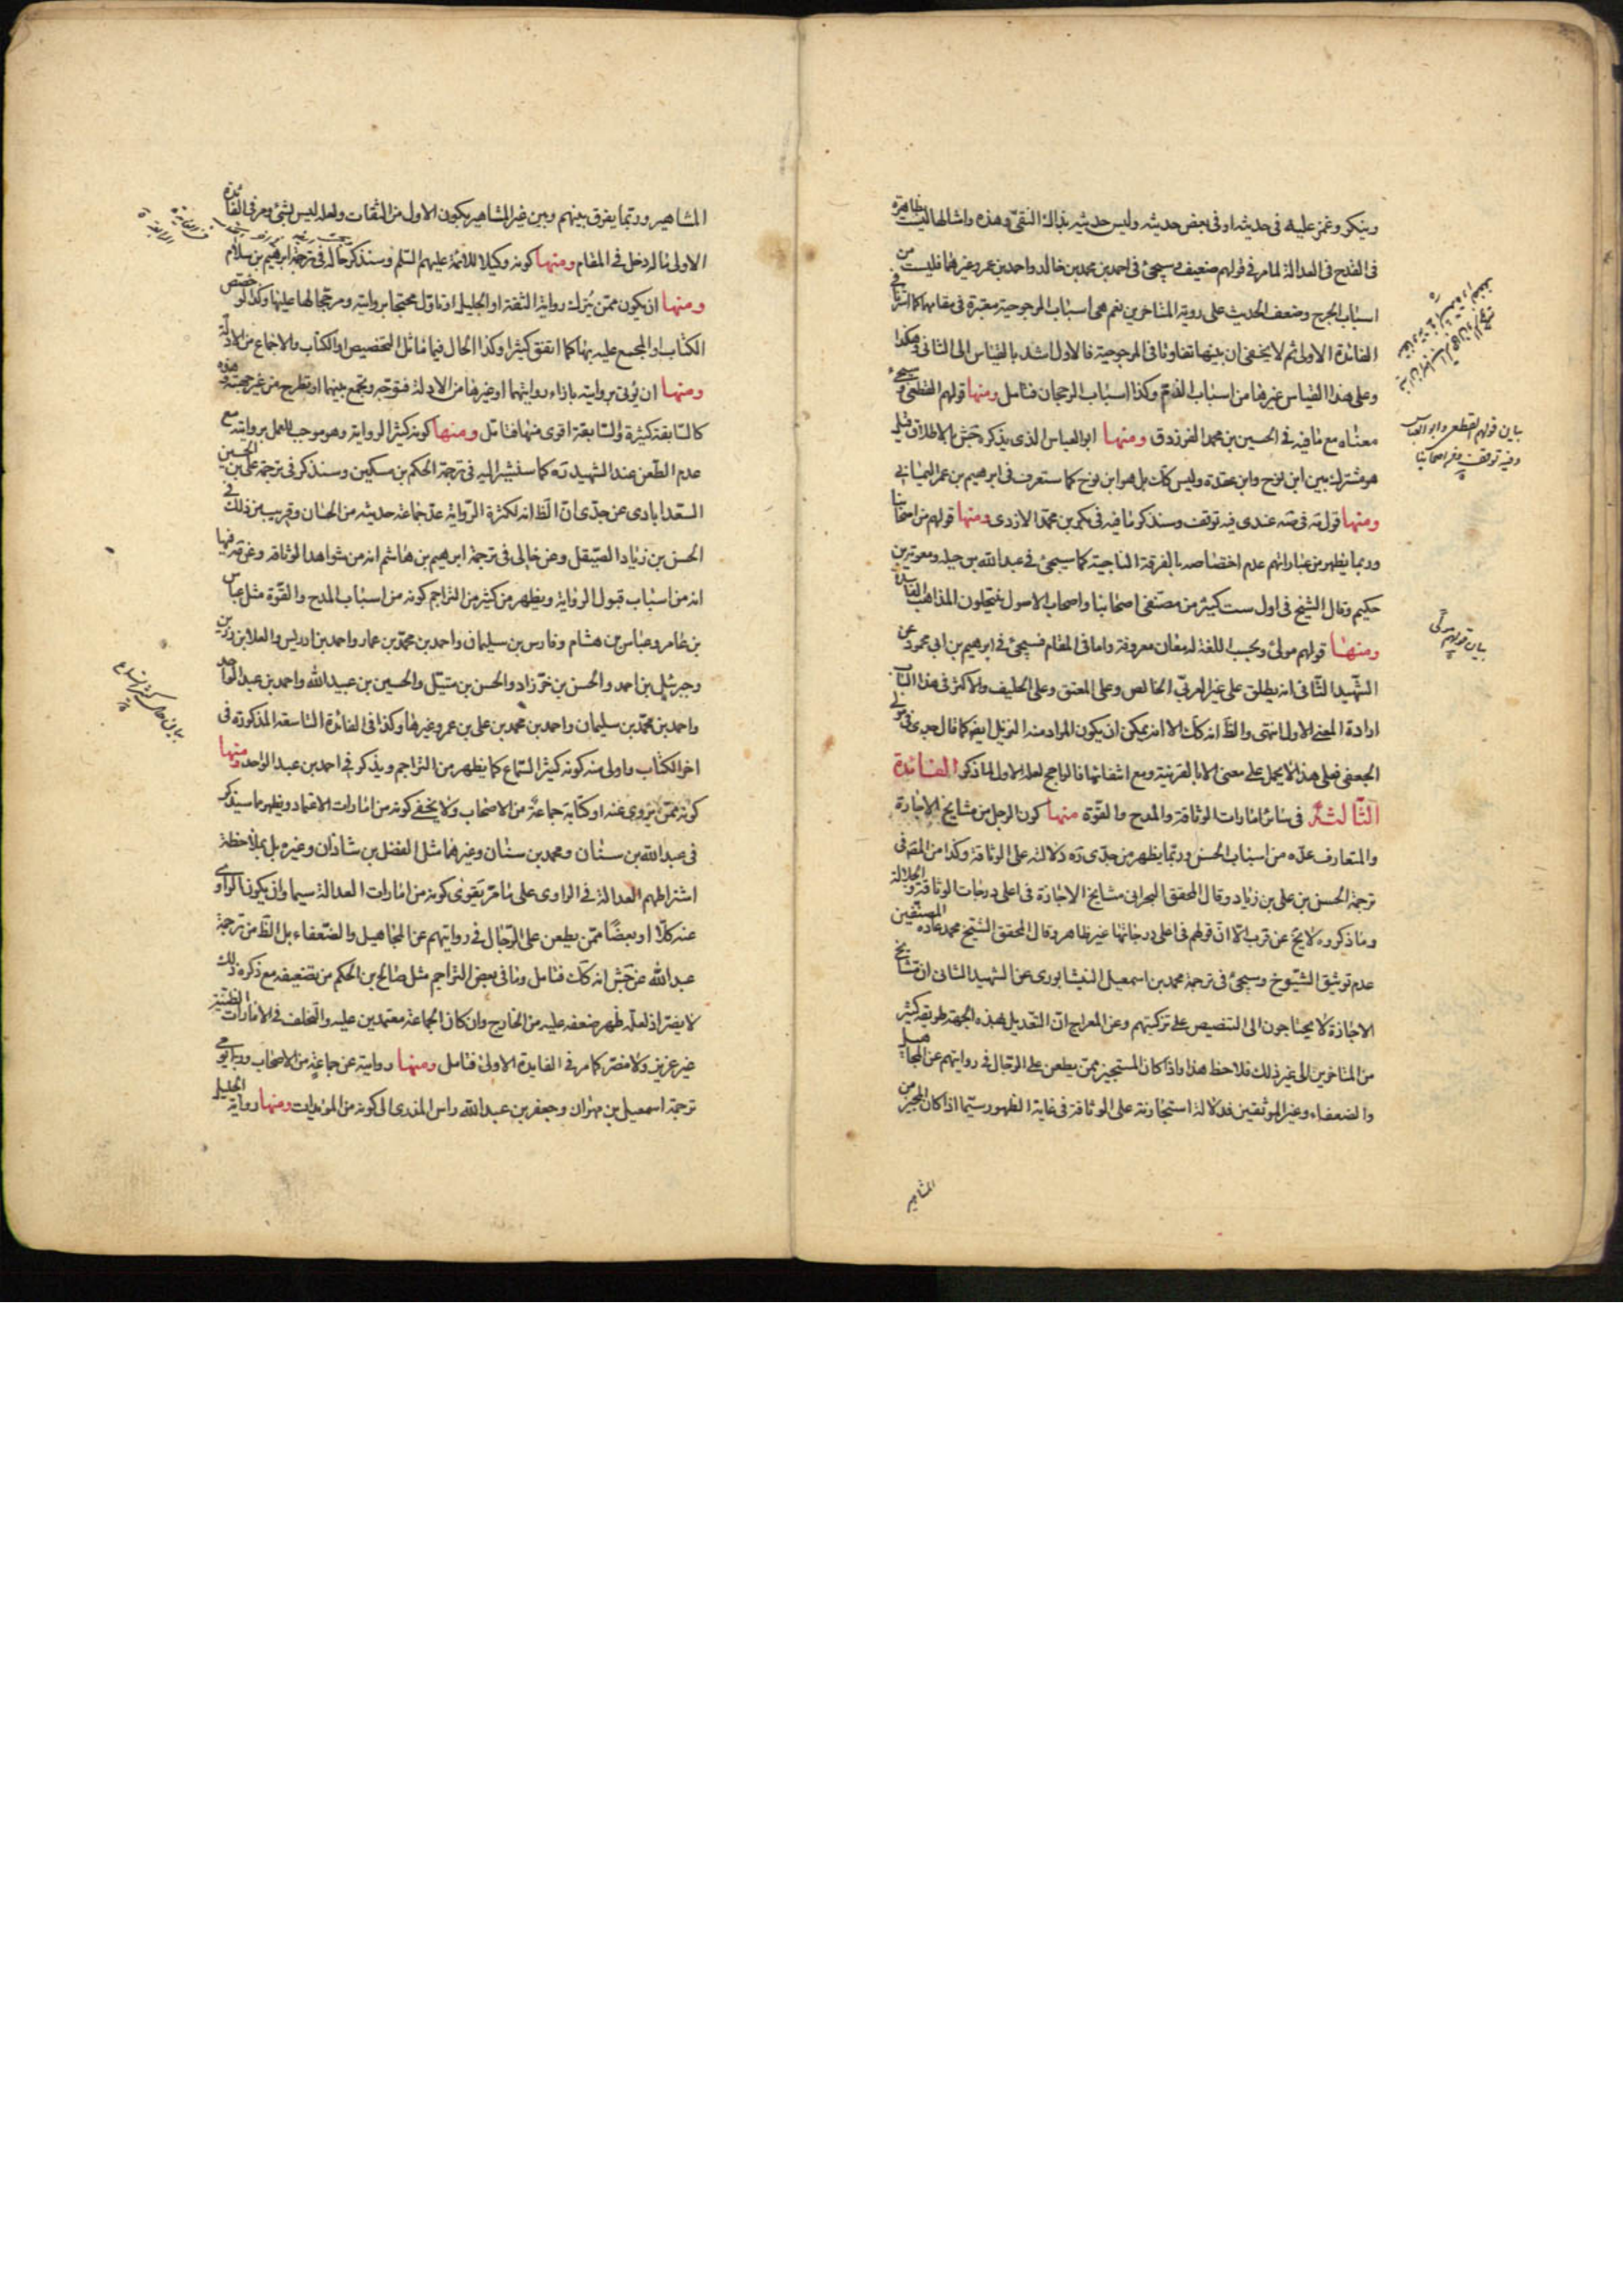 وينكر وغمز عليه في حديثه او في بعض حديثه وليس حديثه بذالك النقي وهذه وامثالها ليست بظاهرة
في القدح في العدالة لما مر في قولهم ضعيف وسيجئ في احمد بن محمد بن خالد واحمد بن عمر وغيرهما فليست من
اسباب الجرح وضعف الحديث على روية المتاخرين نعم هي اسباب المرجوحية معتبرة في مقامها كما اشرنا في
الفائدة الاولى ثم لا يخفى ان بينها تفاوتا في المرجوحية فالاول اشد بالقياس الى الثاني وهكذا
وعلى هذا القياس غيرها من اسباب الذم وكذا اسباب الرجحان فتامل ومنها قولهم القطعي وسيجئ
معناه مع ما فيه في الحسين بن محمد الفرزدق ومنها ابو العباس الذي يذكره جش بالاطلاق قيل
هو مشترك بين ابن نوح وابن عقدة وليس كك بل هو ابن نوح كما ستعرف في ابرهيم بن عمر اليماني
ومنها قول مه في صه عندى فيه توقف وسنذكر ما فيه في بكر بن محمد الازدى ومنها قولهم من اصحابنا
وربما يظهر من عباراتهم عدم اختصاصه بالفرقة الناجية كما سيجئ في عبد الله بن جبله ومعوية بن
حكيم وقال الشيخ في اول ست كثير من مصنفى اصحابنا واصحاب الاصول ينتحلون المذاهب الفاسدة
ومنها قولهم مولى وبحسب اللغة له معان معروفة واما في المقام فسيجئ في ابرهيم بن ابى محمود عن
الشهيد الثاني انه يطلق على غير العربي الخالص وعلى المعتق وعلى الحليف والاكثر في هذا الباب
ارادة المعنى الاول انتهى والظ انه كك الا انه يمكن ان يكون المراد منه النزيل ايضا كما قال جدى في مولى
الجعفي فعلى هذا لا يحمل على معنى الا بالقرينة ومع انتفائها فالراجح لعله الاول لما ذكر الفائدة
الثالثة في سائر امارات الوثاقة والمدح والقوة منها كون الرجل من مشايخ الاجازة
والمتعارف عده من اسباب الحسن وربما يظهر من جدى ره دلالته على الوثاقة وكذا من المصه في
ترجمة الحسن بن على بن زياد وقال المحقق البحراني مشايخ الاجازة في اعلى درجات الوثاقة والجلالة
وما ذكروه لا يخ عن قرب الا ان قولهم في اعلى درجاتها غير ظاهر وقال المحقق الشيخ محمد عادة المصنفين
عدم توثيق الشيوخ وسيجئ في ترجمة محمد بن اسمعيل النيشابورى عن الشهيد الثاني ان مشايخ
الاجازة لا يحتاجون الى التنصيص على تزكيتهم وعن المعراج ان التعديل بهذه الجهة طريقة كثير
من المتاخرين الى غير ذلك فلاحظ هذا واذا كان المستجيز ممن يطعن على الرجال في روايتهم عن المجاهيل
والضعفاء وغير الموثقين فدلالة استجازته على الوثاقة في غاية الظهور سيما اذا كان المجيز من
المشاهير
باين قولهم القطعى وابو العباس
وفيه توقف ومن اصحابنا
بيان قولهم مولى
المشاهير وربما يفرق بينهم وبين غير المشاهير بكون الاول من الثقات ولعله ليس بشئ ومر في الفائدة
الاولى ما له دخل في المقام ومنها كونه وكيلا للائمة عليهم السلم وسنذكر حاله في ترجمة ابرهيم بن سلام
ومنها ان يكون ممن يترك رواية الثقة او الجليل او تاول محتجا بروايته ومرجحا لها عليها وكذا لو خصص
الكتاب او المجمع عليه بها كما اتفق كثيرا وكذا الحال فيما ماثل التخصيص او الكتاب والاجماع من الادلة
ومنها ان يؤتى بروايته بازاء روايتهما او غيرها من الادلة فتوجه وتجمع بينهما او تطرح من غير جهته وهذه
كالسابقة كثيرة والسابقة اقوى منها فتامل ومنها كونه كثير الرواية وهو موجب للعمل بروايته مع
عدم الطعن عند الشهيد ره كما سنشير اليه في ترجمة الحكم بن مسكين وسنذكر في ترجمة على بن الحسين
السعدابادى عن جدى ان الظ انه لكثرة الرواية عد جماعة حديثه من الحسان وقريب من ذلك في
الحسن بن زياد الصيقل وعن خالى في ترجمة ابرهيم بن هاشم انه من شواهد الوثاقه وعن مه فيها
انه من اسباب قبول الرواية ويظهر من كثير من التراجم كونه من اسباب المدح والقوة مثل عباس
بن عامر وعباس بن هشام وفارس بن سليمان واحمد بن محمد بن عمار واحمد بن ادريس والعلا بن رزين
وجبرئيل بن احمد والحسن بن خرزاد والحسن بن متيل والحسين بن عبيد الله واحمد بن عبد الواحد
واحمد بن محمد بن سليمان واحمد بن محمد بن على بن عمر وغيرها وكذا في الفائدة التاسعة المذكورة في
اخر الكتاب واولى منه كونه كثير السماع كما يظهر من التراجم ويذكر في احمد بن عبد الواحد ومنها
كونه ممن يروى عنه او كتابه جماعة من الاصحاب ولا يخفى كونه من امارات الاعتماد ويظهر مما سيذكر
في عبد الله بن سنان ومحمد بن سنان وغيرهما مثل الفضل بن شاذان وغيره بل بملاحظة
اشتراطهم العدالة في الراوى على ما مر يقوى كونه من امارات العدالة سيما وان يكون الراوى
عنه كلا او بعضا ممن يطعن على الرجال في روايتهم عن المجاهيل والضعفاء بل الظ من ترجمة
عبد الله عن جش انه كك فتامل وما في بعض التراجم مثل صالح بن الحكم من تضعيفه مع ذكره ذلك
لا يضر اذ لعله ظهر ضعفه عليه من الخارج وان كان الجماعة معتمدين عليه والتخلف في الامارات الظنية
غير عزيز ولا مضر كما مر في الفايدة الاولى فتامل ومنها روايته عن جماعة من الاصحاب وربما يومى
ترجمة اسمعيل بن مهران وجعفر بن عبد الله راس المذرى الى كونه من المؤيدات ومنها رواية الجليل